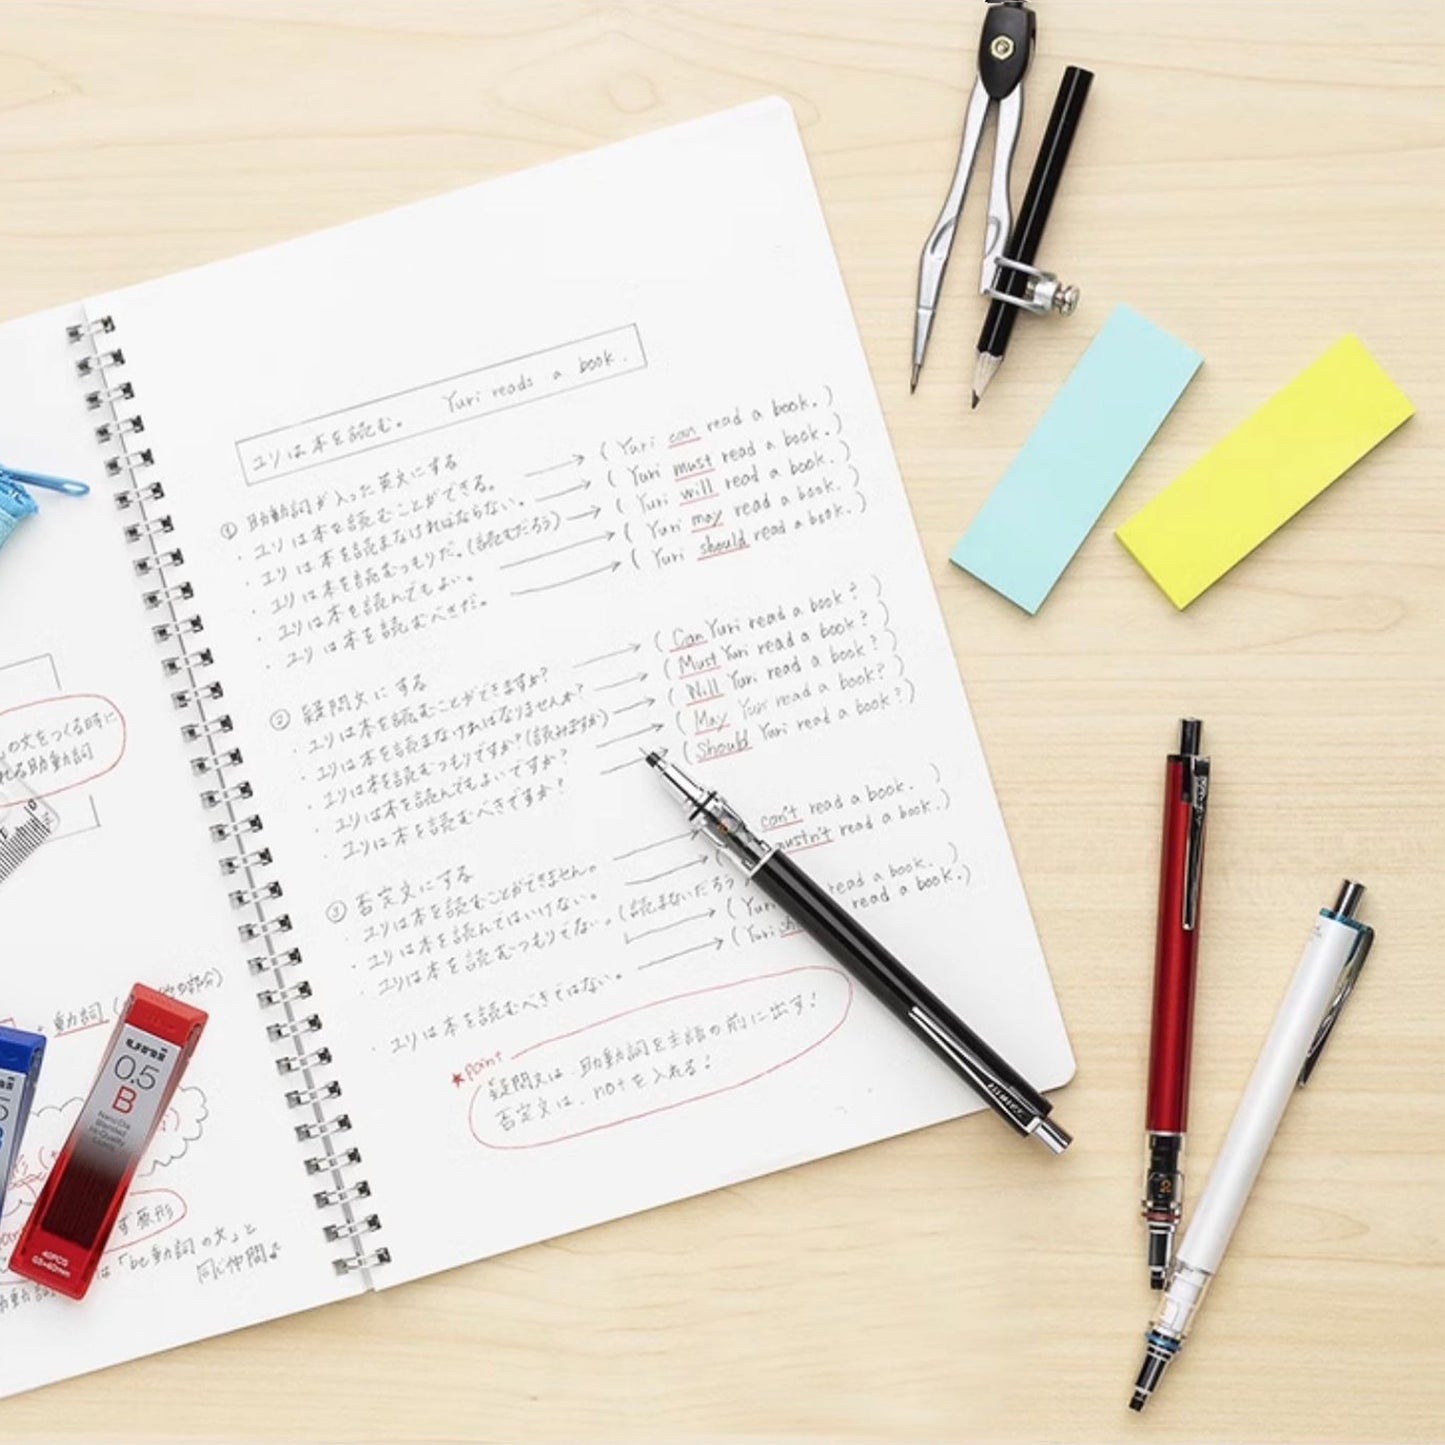 の文をつくる時に
れる助動詞
動詞
部分)
uni
0.5
B
Nano Dia
Blended
Hi-Quality
Leads
40PCS
0.5×60mm
す原形
は「be動詞の文」と
同じ仲間♪
ユリは本を読む。 Yuri reads a book.
① 助動詞が入った英文にする
・ユリは本を読むことができる。 → (Yuri can read a book.)
・ユリは本を読まなければならない。 → (Yuri must read a book.)
・ユリは本を読むつもりだ。(読むだろう) → (Yuri will read a book.)
・ユリは本を読んでもよい。 → (Yuri may read a book.)
・ユリは本を読むべきだ。 → (Yuri should read a book.)
② 疑問文にする
・ユリは本を読むことができますか? → (Can Yuri read a book?)
・ユリは本を読まなければなりませんか? → (Must Yuri read a book?)
・ユリは本を読むつもりですか?(読みますか) → (Will Yuri read a book?)
・ユリは本を読んでもよいですか? → (May Yuri read a book?)
・ユリは本を読むべきですか? → (Should Yuri read a book?)
③ 否定文にする
・ユリは本を読むことができません。 → can't read a book.)
・ユリは本を読んではいけない。 → mustn't read a book.)
・ユリは本を読むつもりでない。(読まないだろう → (Yuri read a book.)
・ユリは本を読むべきではない。 → (Yuri read a book.)
★Point
疑問文は、助動詞を主語の前に出す!
否定文は、notを入れる!